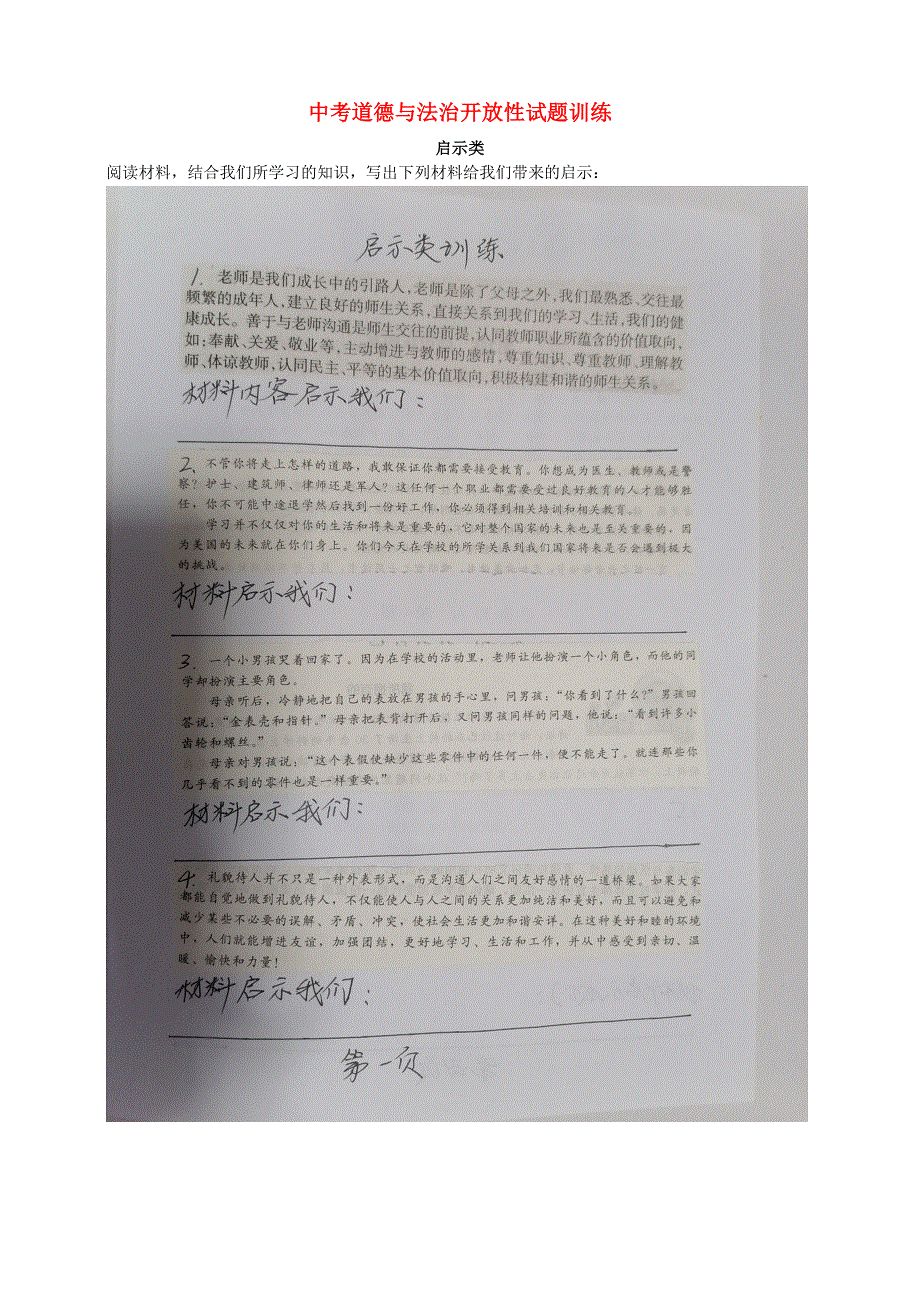 中考道德与法治开放性试题训练
启示类
阅读材料，结合我们所学习的知识，写出下列材料给我们带来的启示：
启示类训练
1. 老师是我们成长中的引路人，老师是除了父母之外，我们最熟悉、交往最
频繁的成年人，建立良好的师生关系，直接关系到我们的学习、生活，我们的健
康成长。善于与老师沟通是师生交往的前提，认同教师职业所蕴含的价值取向，
如：奉献、关爱、敬业等，主动增进与教师的感情，尊重知识、尊重教师、理解教
师、体谅教师，认同民主、平等的基本价值取向，积极构建和谐的师生关系。
材料内容启示我们：
2. 不管你将走上怎样的道路，我敢保证你都需要接受教育。你想成为医生、教师或是警
察？护士、建筑师、律师还是军人？这任何一个职业都需要受过良好教育的人才能够胜
任，你不可能中途退学然后找到一份好工作，你必须得到相关培训和相关教育。
学习并不仅仅对你的生活和将来是重要的，它对整个国家的未来也是至关重要的，因
为美国的未来就在你们身上。你们今天在学校的所学关系到我们国家将来是否会遇到极大
的挑战。
材料启示我们：
3. 一个小男孩哭着回家了。因为在学校的活动里，老师让他扮演一个小角色，而他的同
学却扮演主要角色。
母亲听后，冷静地把自己的表放在男孩的手心里，问男孩：“你看到了什么？”男孩回
答说：“金表壳和指针。”母亲把表背打开后，又问男孩同样的问题，他说：“看到许多小
齿轮和螺丝。”
母亲对男孩说：“这个表假使缺少这些零件中的任何一件，便不能走了。就连那些你
几乎看不到的零件也是一样重要。”
材料启示我们：
4. 礼貌待人并不只是一种外表形式，而是沟通人们之间友好感情的一道桥梁。如果大家
都能自觉地做到礼貌待人，不仅能使人与人之间的关系更加纯洁和美好，而且可以避免和
减少某些不必要的误解、矛盾、冲突，使社会生活更加和谐安详。在这种美好和睦的环境
中，人们就能增进友谊，加强团结，更好地学习、生活和工作，并从中感受到亲切、温
暖、愉快和力量！
材料启示我们：
第一页